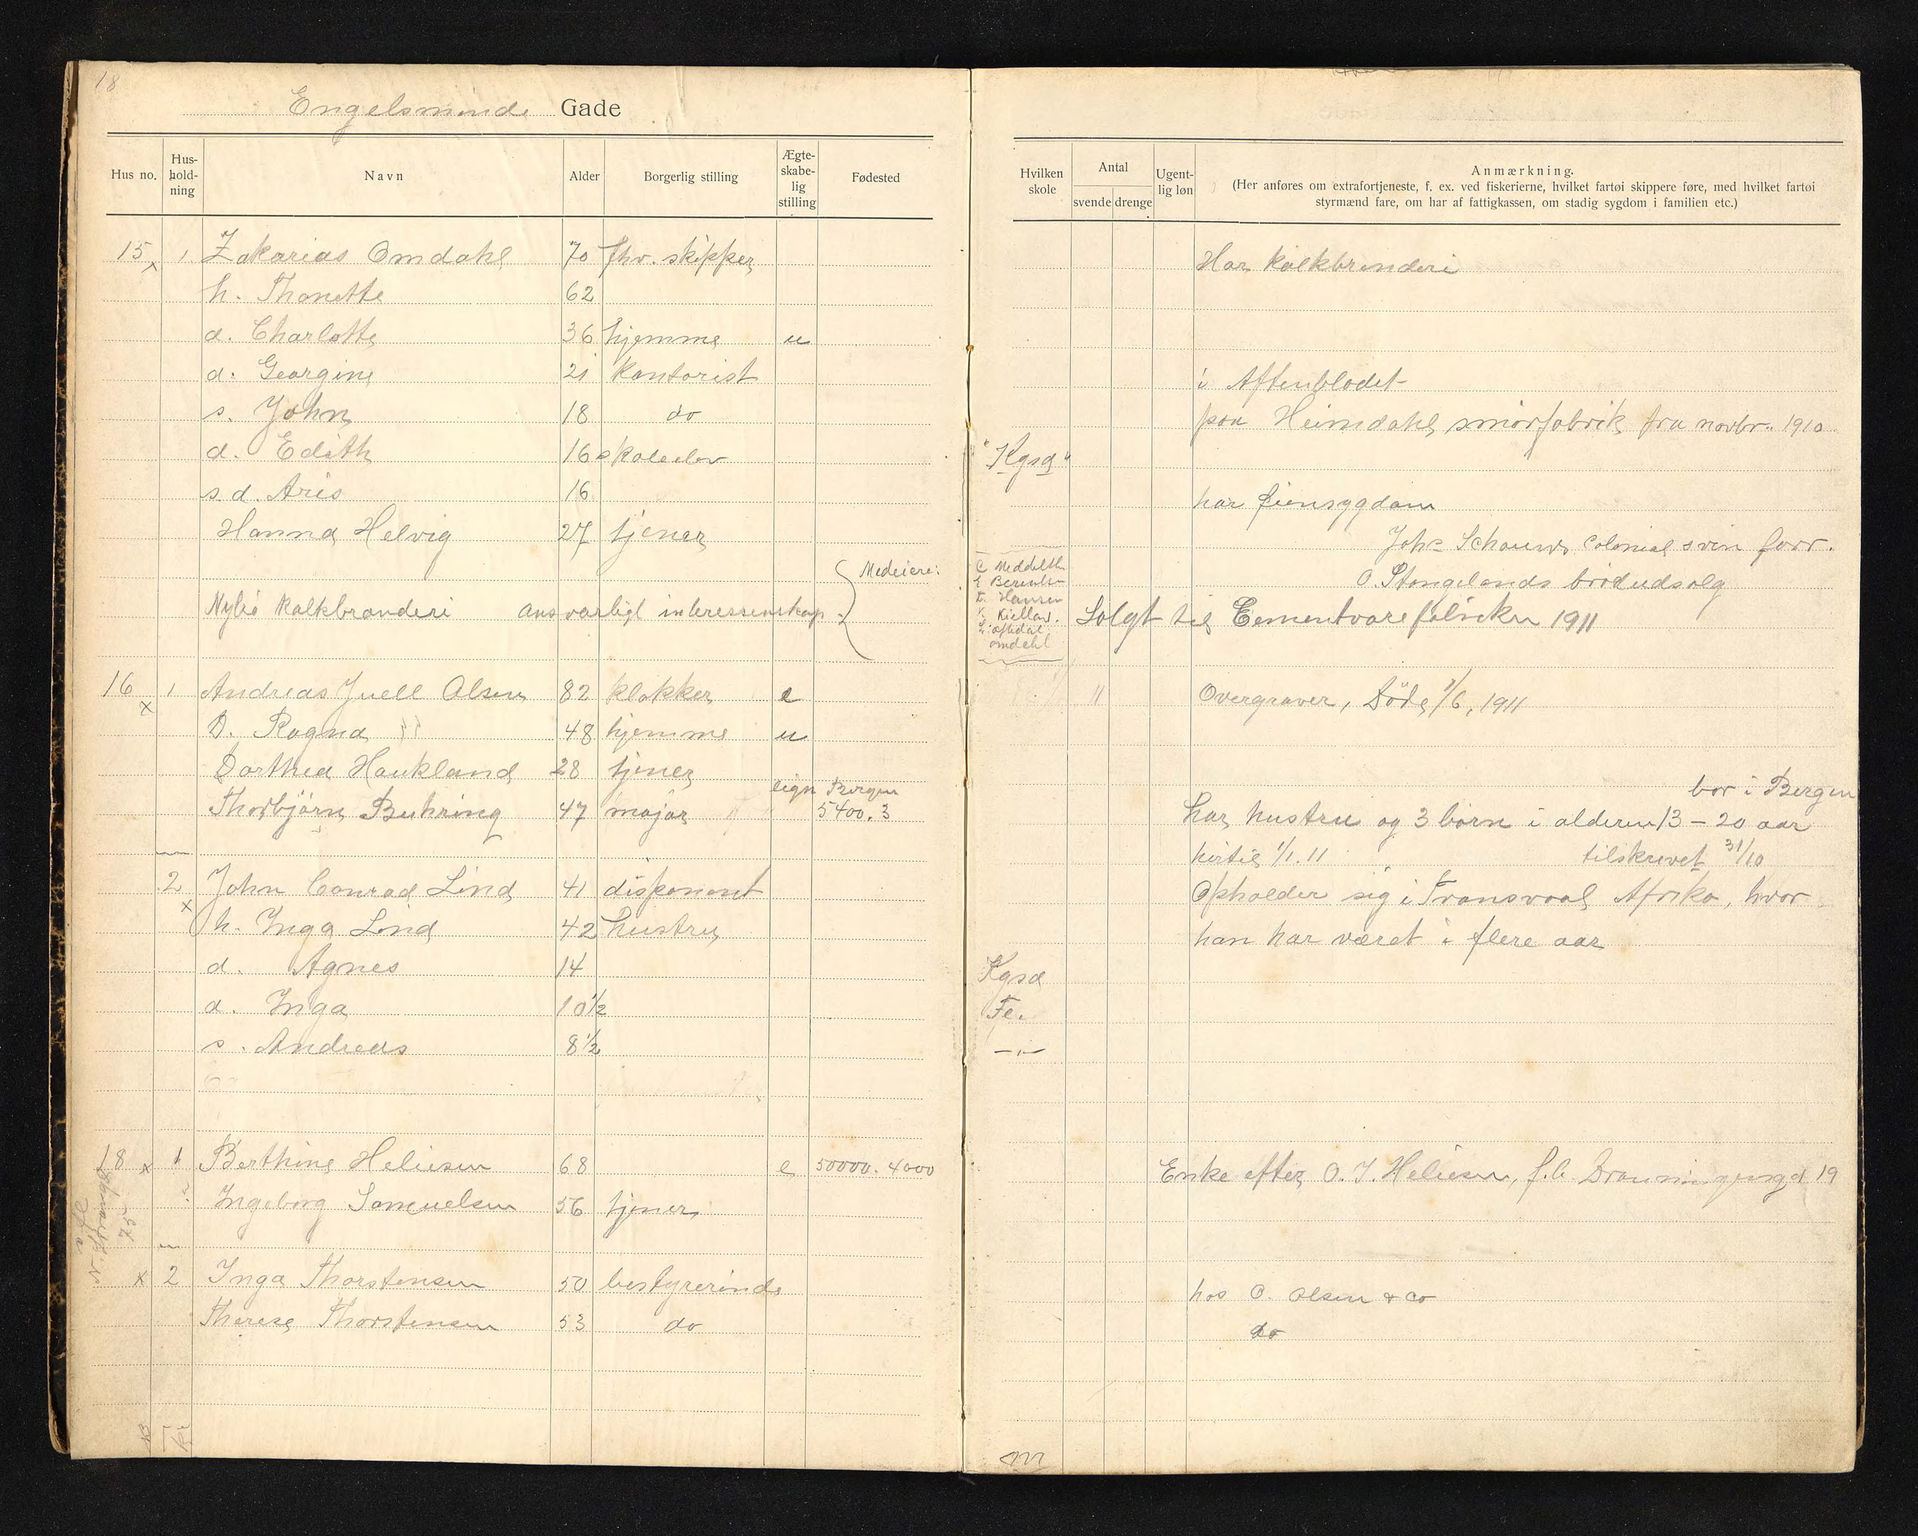 18
Engelsminde Gade
Hus no. Hus-hold-ning Navn Alder Borgerlig stilling Ægte-skabe-lig stilling Fødested
Hvilken skole Antal svende drenge Ugent-lig løn Anmærkning.
(Her anføres om extrafortjeneste, f. ex. ved fiskerierne, hvilket fartøi skippere føre, med hvilket fartøi
styrmænd fare, om har af fattigkassen, om stadig sygdom i familien etc.)
15 x 1. Zakarias Omdahl 70 fhv. skipper Har kalkbrenderi
h. Thonette 62
d. Charlotte 36 hjemme u
d. Georgine 21 kontorist i Aftenbladet
s. John 18 do paa Heimdahls smørfabrik fra novbr. 1910
d. Edith 16 skoleelev "Kgsd"
s d. Aris 16 har øiensygdom
Hanna Helvig 27 tjener Johs Schouws Colonial & vin forr.
Medeiere: C Middelth O. Stangelands brødudsalg
E Berentsen
Hansen
Nylsø kalkbrænderi ansvarligt interessenskap Kielland. Solgt til Cementvarefabriken 1911
Omdahl
16 x 1 Andreas Juell Olsen 82 klokker e " Overgraver, Død 1/6, 1911
D. Ragna " 48 hjemme u
Dorthea Haukland 28 tjener
lign Bergen bor i Bergen
Thorbjørn Buhring 47 major 5400. 3 har hustru og 3 børn i alderen 13 – 20 aar
hertil 1/1. 11 tilskrevet 31/10
2 x John Conrad Lind 41 disponent Opholder sig i Transvaal Afrika, hvor
h. Inga Lind 42 hustru han har været i flere aar
d. Agnes 14 Kgsd
d. Inga 10 1/2 Fe.
s. Andreas 8 1/2 – " –
18 x 1 Berthine Heliesen 68 e 50000. 4000 Enke efter O. J. Heliesen, f.b. Dronningengd 19
Ingeborg Samuelsen 56 tjener
x 2 Inga Thorstensen 50 bestyrerinde hos O. Olsen & Co
Therese Thorstensen 53 do do